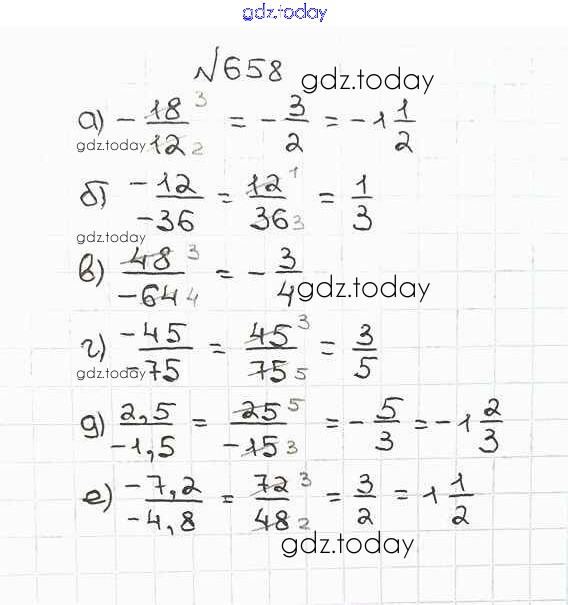 gdz.today
№658
gdz.today
а) -18/12 3 2 = -3/2 = -1 1/2
gdz.today
б) -12/-36 = 12/36 1 3 = 1/3
gdz.today
в) 48/-64 3 4 = -3/4
gdz.today
г) -45/-75 = 45/75 3 5 = 3/5
gdz.today
д) 2,5/-1,5 = 25/-15 5 3 = -5/3 = -1 2/3
е) -7,2/-4,8 = 72/48 3 2 = 3/2 = 1 1/2
gdz.today